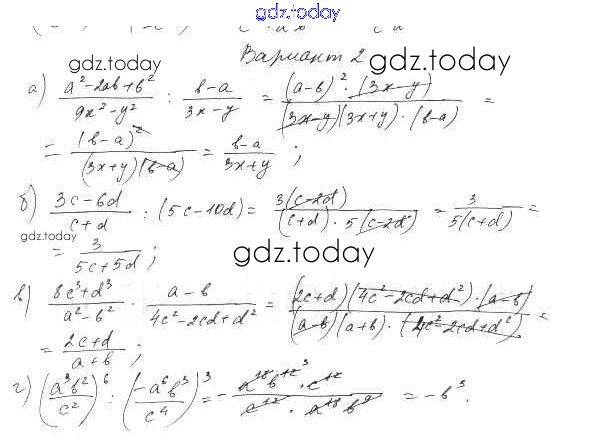 gdz.today
Вариант 2 gdz.today
gdz.today
а) (a² - 2ab + b²)/(9x² - y²) : (b - a)/(3x - y) = ((a - b)² · (3x - y))/((3x - y)(3x + y) · (b - a)) =
= (b - a)²/((3x + y)(b - a)) = (b - a)/(3x + y) ;
б) (3c - 6d)/(c + d) : (5c - 10d) = 3(c - 2d)/((c + d) · 5(c - 2d)) = 3/(5(c + d)) =
gdz.today
= 3/(5c + 5d) ;
gdz.today
в) (8c³ + d³)/(a² - b²) · (a - b)/(4c² - 2cd + d²) = ((2c + d)(4c² - 2cd + d²) · (a - b))/((a - b)(a + b) · (4c² - 2cd + d²)) =
= (2c + d)/(a + b) ;
г) (a³b²/c²)⁶ : (-a⁶b³/c⁴)³ = - (a¹⁸b¹² ³ · c¹²)/(c¹² · a¹⁸b⁹) = -b³.